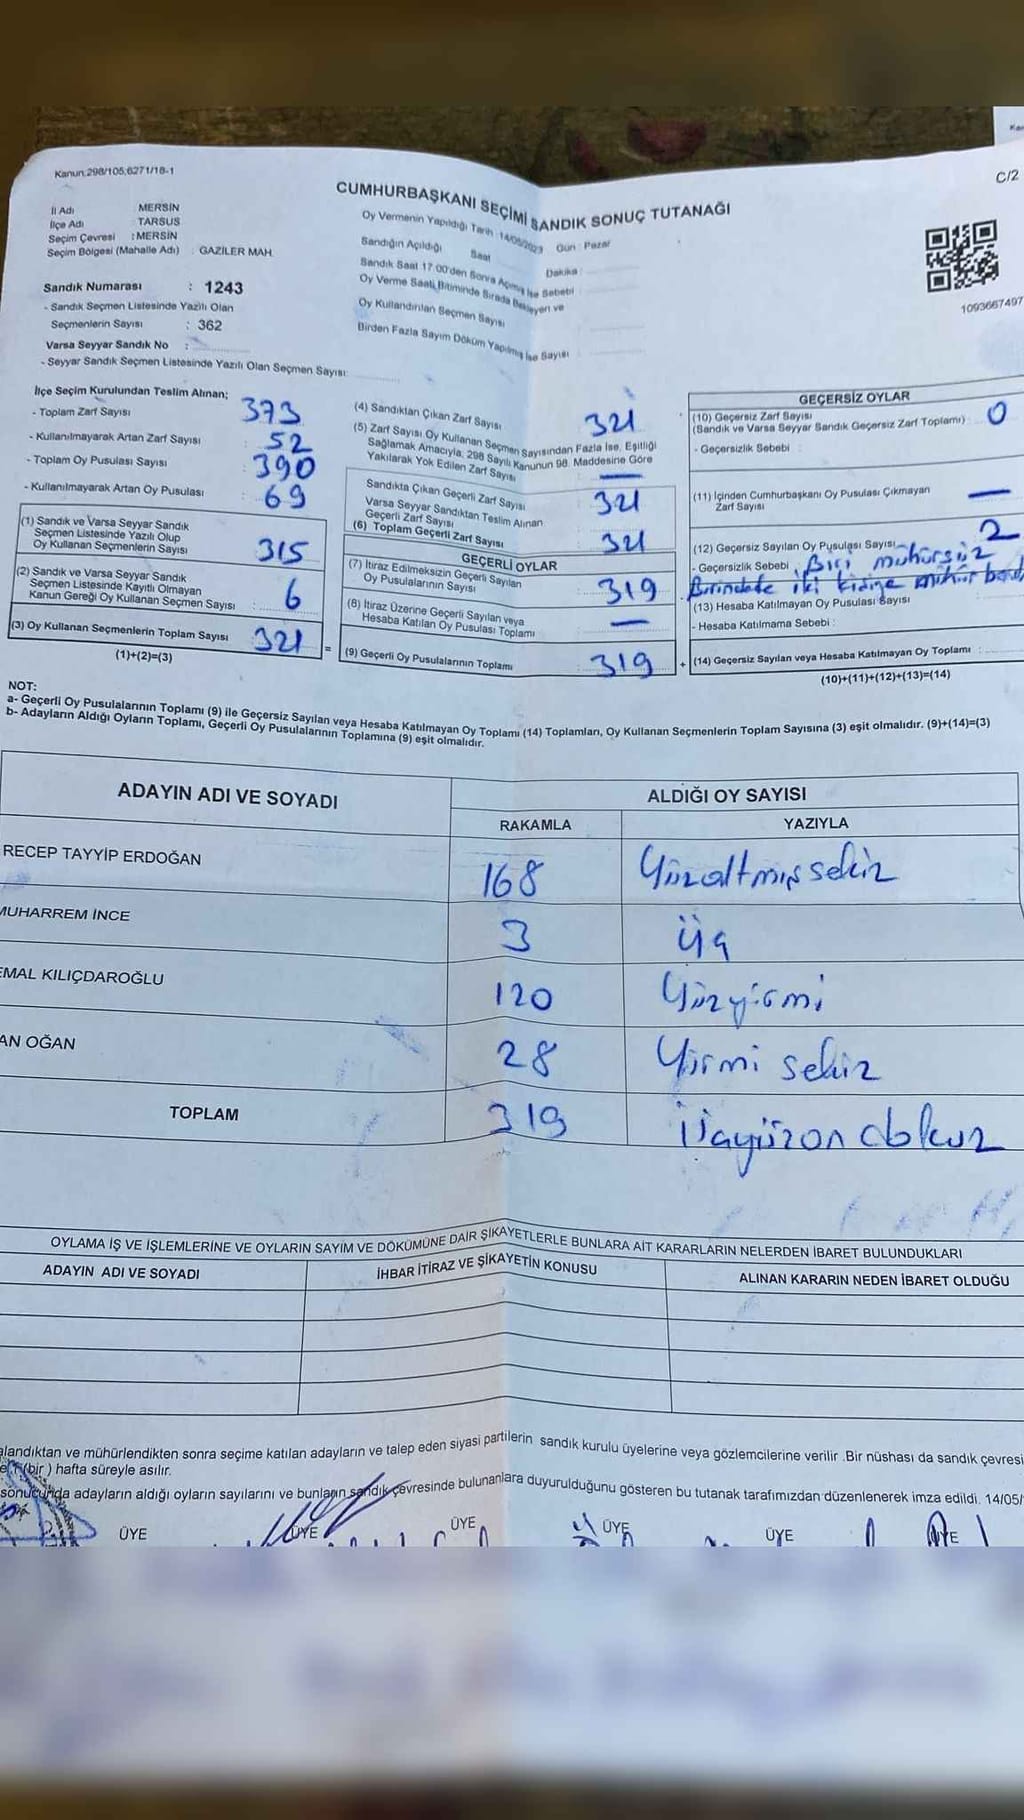 Kanun;298/105,6271/18-1
C/2
CUMHURBAŞKANI SEÇİMİ SANDIK SONUÇ TUTANAĞI
İl Adı MERSİN
İlçe Adı TARSUS
Seçim Çevresi : MERSİN
Seçim Bölgesi (Mahalle Adı) : GAZİLER MAH.
Sandık Numarası : 1243
- Sandık Seçmen Listesinde Yazılı Olan
Seçmenlerin Sayısı : 362
Varsa Seyyar Sandık No :
- Seyyar Sandık Seçmen Listesinde Yazılı Olan Seçmen Sayısı:
Oy Vermenin Yapıldığı Tarih 14/05/2023 Gün : Pazar
Sandığın Açıldığı Saat Dakika
Sandık Saat 17.00'den Sonra Açılmış İse Sebebi
Oy Verme Saati Bitiminde Sırada Bekleyen ve
Oy Kullandırılan Seçmen Sayısı
Birden Fazla Sayım Döküm Yapılmış İse Sayısı
1093667497
İlçe Seçim Kurulundan Teslim Alınan;
- Toplam Zarf Sayısı 373
- Kullanılmayarak Artan Zarf Sayısı 52
- Toplam Oy Pusulası Sayısı 390
- Kullanılmayarak Artan Oy Pusulası 69
(1) Sandık ve Varsa Seyyar Sandık
Seçmen Listesinde Yazılı Olup
Oy Kullanan Seçmenlerin Sayısı 315
(2) Sandık ve Varsa Seyyar Sandık
Seçmen Listesinde Kayıtlı Olmayan
Kanun Gereği Oy Kullanan Seçmen Sayısı 6
(3) Oy Kullanan Seçmenlerin Toplam Sayısı 321 =
(1)+(2)=(3)
(4) Sandıktan Çıkan Zarf Sayısı 321
(5) Zarf Sayısı Oy Kullanan Seçmen Sayısından Fazla İse, Eşitliği
Sağlamak Amacıyla, 298 Sayılı Kanunun 98. Maddesine Göre
Yakılarak Yok Edilen Zarf Sayısı —
Sandıkta Çıkan Geçerli Zarf Sayısı 321
Varsa Seyyar Sandıktan Teslim Alınan
Geçerli Zarf Sayısı
(6) Toplam Geçerli Zarf Sayısı 321
GEÇERLİ OYLAR
(7) İtiraz Edilmeksizin Geçerli Sayılan
Oy Pusulalarının Sayısı 319
(8) İtiraz Üzerine Geçerli Sayılan veya
Hesaba Katılan Oy Pusulası Toplamı —
(9) Geçerli Oy Pusulalarının Toplamı 319 +
GEÇERSİZ OYLAR
(10) Geçersiz Zarf Sayısı
(Sandık ve Varsa Seyyar Sandık Geçersiz Zarf Toplamı) : 0
- Geçersizlik Sebebi :
(11) İçinden Cumhurbaşkanı Oy Pusulası Çıkmayan
Zarf Sayısı —
(12) Geçersiz Sayılan Oy Pusulası Sayısı 2
- Geçersizlik Sebebi Biri mühürsüz
Birindede iki kişiye mühür
(13) Hesaba Katılmayan Oy Pusulası Sayısı
- Hesaba Katılmama Sebebi :
(14) Geçersiz Sayılan veya Hesaba Katılmayan Oy Toplamı :
(10)+(11)+(12)+(13)=(14)
NOT:
a- Geçerli Oy Pusulalarının Toplamı (9) ile Geçersiz Sayılan veya Hesaba Katılmayan Oy Toplamı (14) Toplamları, Oy Kullanan Seçmenlerin Toplam Sayısına (3) eşit olmalıdır. (9)+(14)=(3)
b- Adayların Aldığı Oyların Toplamı, Geçerli Oy Pusulalarının Toplamına (9) eşit olmalıdır.
ADAYIN ADI VE SOYADI ALDIĞI OY SAYISI
RAKAMLA YAZIYLA
RECEP TAYYİP ERDOĞAN 168 Yüzaltmışsekiz
MUHARREM İNCE 3 Üç
EMAL KILIÇDAROĞLU 120 Yüzyirmi
AN OĞAN 28 Yirmi sekiz
TOPLAM 319 Üçyüzon dokuz
OYLAMA İŞ VE İŞLEMLERİNE VE OYLARIN SAYIM VE DÖKÜMÜNE DAİR ŞİKAYETLERLE BUNLARA AİT KARARLARIN NELERDEN İBARET BULUNDUKLARI
ADAYIN ADI VE SOYADI İHBAR İTİRAZ VE ŞİKAYETİN KONUSU ALINAN KARARIN NEDEN İBARET OLDUĞU
alandıktan ve mühürlendikten sonra seçime katılan adayların ve talep eden siyasi partilerin sandık kurulu üyelerine veya gözlemcilerine verilir .Bir nüshası da sandık çevresi
(bir) hafta süreyle asılır.
sonucunda adayların aldığı oyların sayılarını ve bunların sandık çevresinde bulunanlara duyurulduğunu gösteren bu tutanak tarafımızdan düzenlenerek imza edildi. 14/05/
ÜYE ÜYE ÜYE ÜYE ÜYE ÜYE